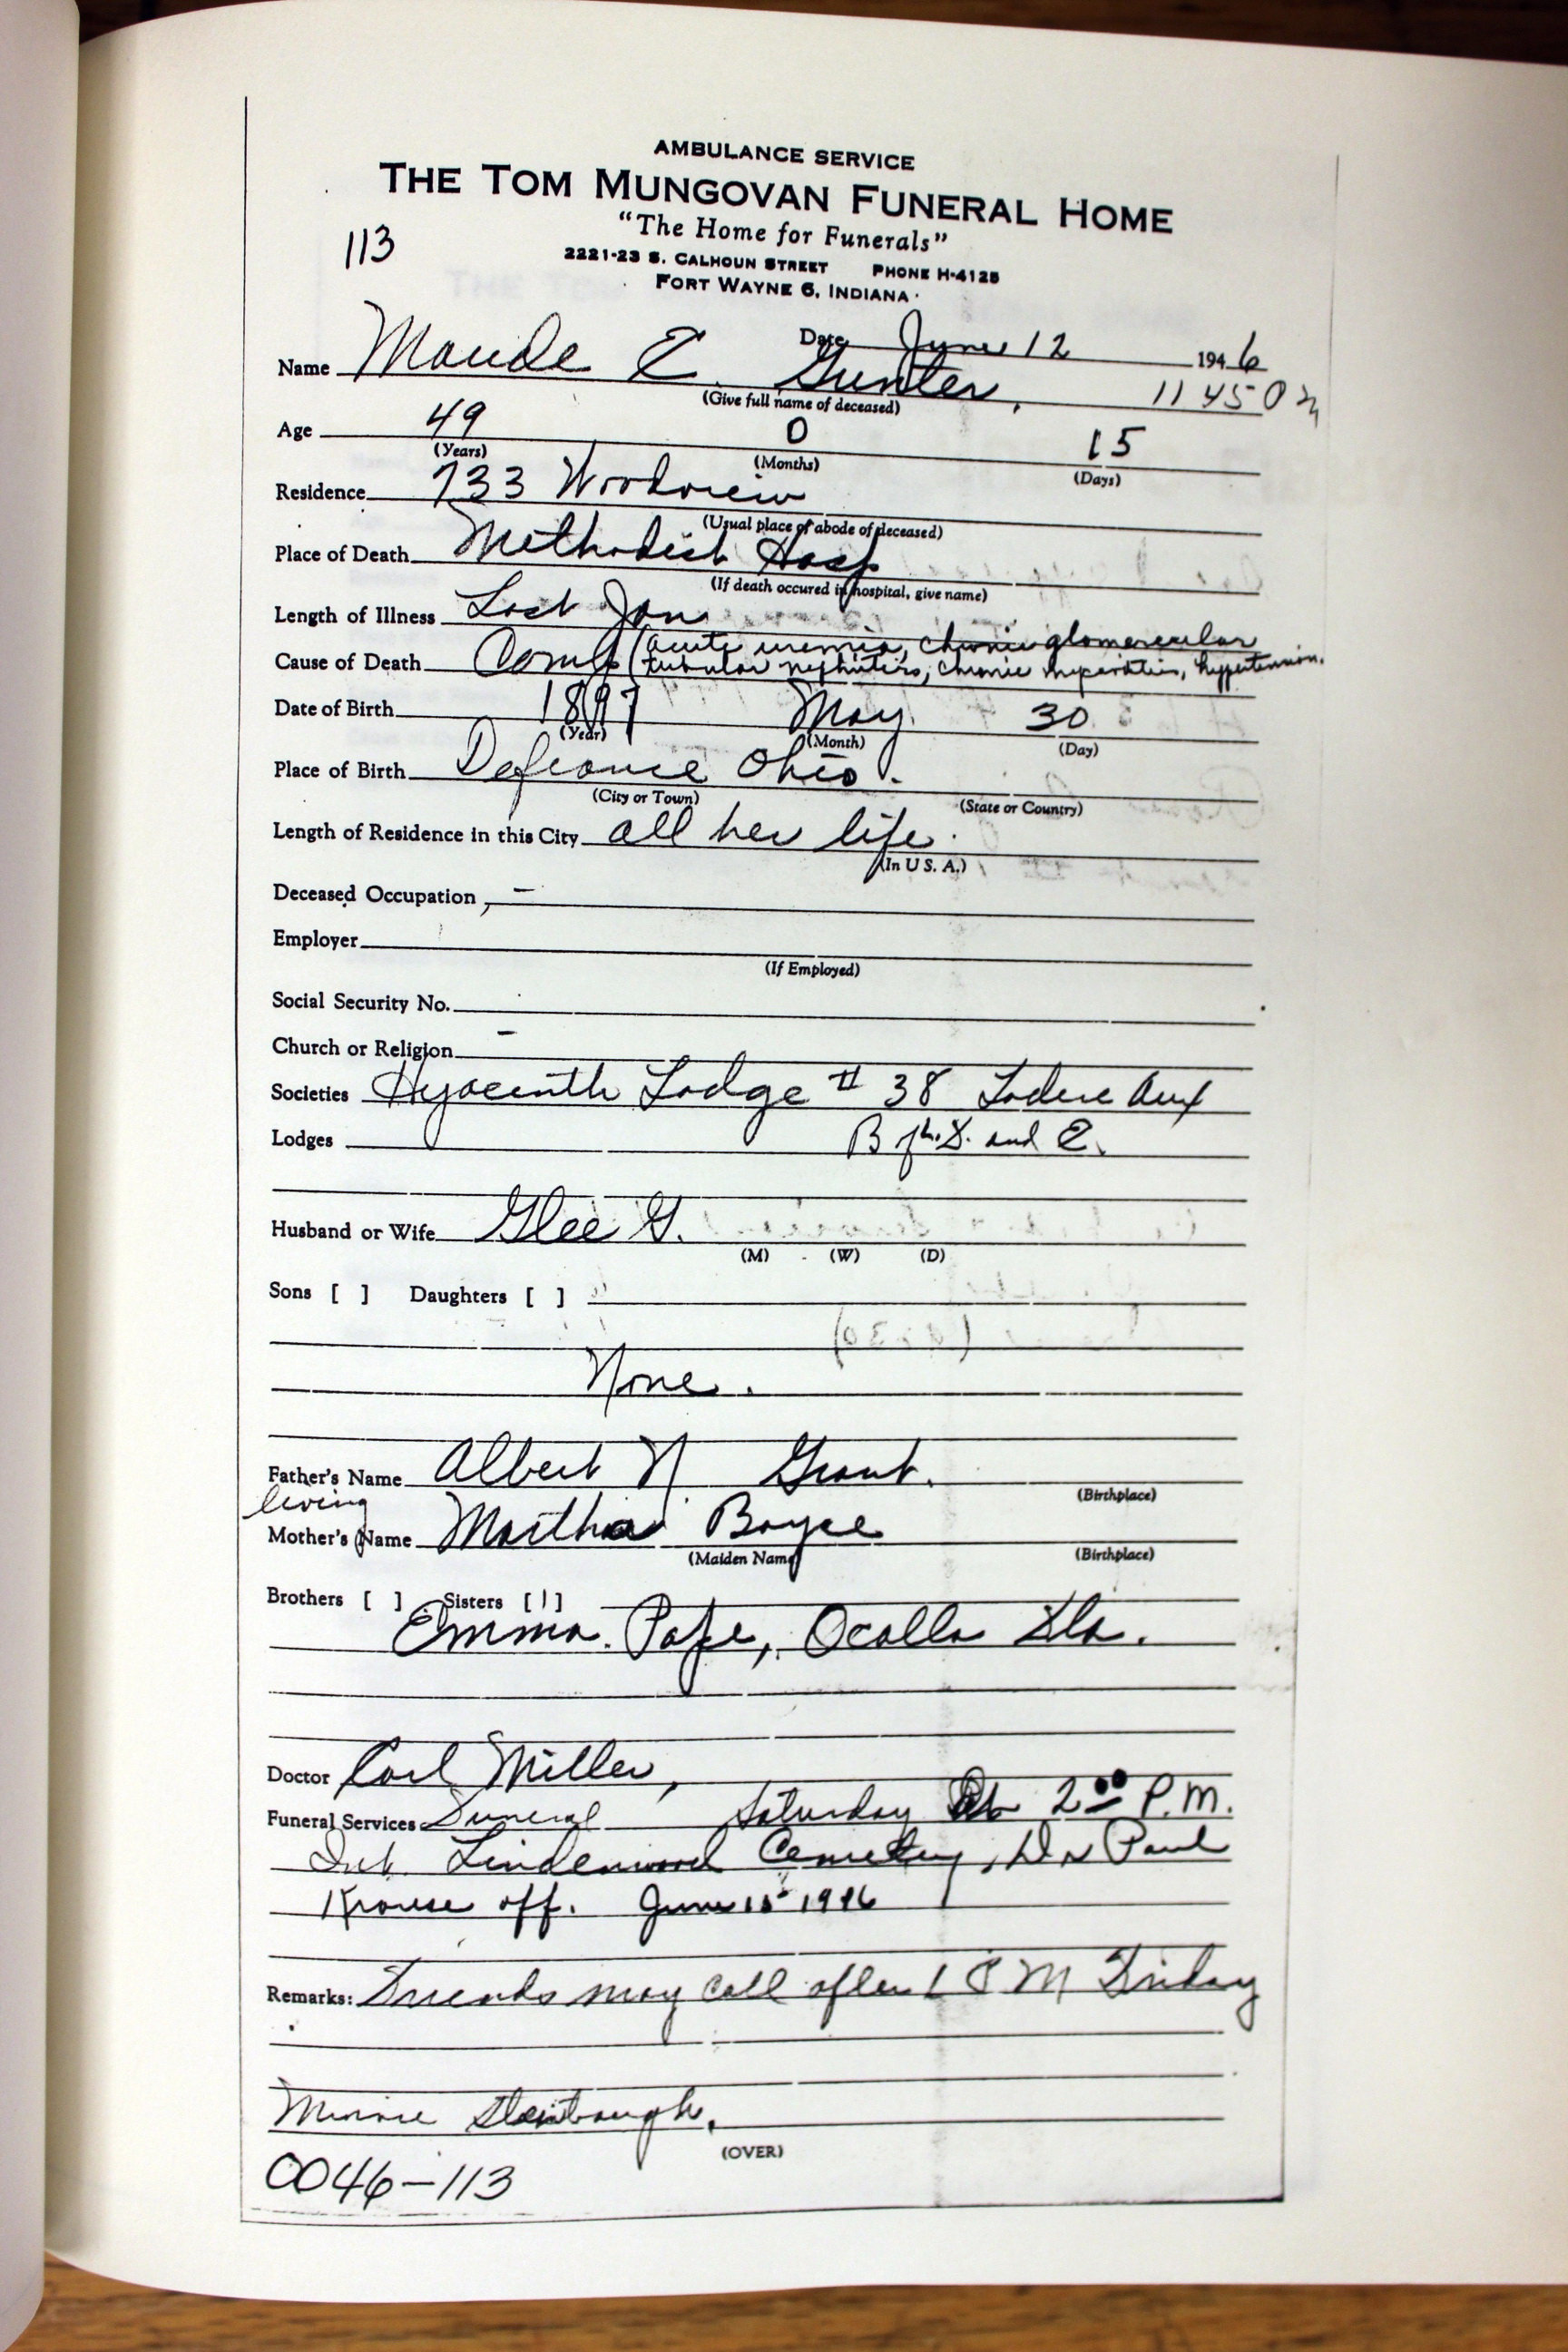 AMBULANCE SERVICE
THE TOM MUNGOVAN FUNERAL HOME
"The Home for Funerals"
113
2221-23 S. CALHOUN STREET PHONE H-4125
FORT WAYNE 6, INDIANA
Date June 12 1946
Name Maude E. Gunter, 11 45
(Give full name of deceased)
Age 49 0 15
(Years) (Months) (Days)
Residence 733 Woodview
(Usual place of abode of deceased)
Place of Death Methodist Hosp
(If death occured in hospital, give name)
Length of Illness Last Jan
Cause of Death Comb (acute uremia, chronic glomerular
tubular nephritis, chronic hypertension.
Date of Birth 1897 May 30
(Year) (Month) (Day)
Place of Birth Defiance Ohio.
(City or Town) (State or Country)
Length of Residence in this City all her life.
(In U S. A.)
Deceased Occupation , -
Employer
(If Employed)
Social Security No.
Church or Religion -
Societies Hyacinth Lodge # 38 Ladies Aux
Lodges B and E.
Husband or Wife Glee G.
(M) (W) (D)
Sons [ ] Daughters [ ]
None.
Father's Name Albert N Grant.
(Birthplace)
living
Mother's Name Martha Boyce
(Maiden Name) (Birthplace)
Brothers [ ] Sisters [1]
Emma. Pape, Ocalla Fla.
Doctor Carl Miller,
Funeral Services Funeral Saturday At 2:00 P.M.
Int. Lindenwood Cemetery, Dr Paul
Krause off. June 15 1946
Remarks: Friends may call after 1 P M Friday
Minnie
(OVER)
0046-113